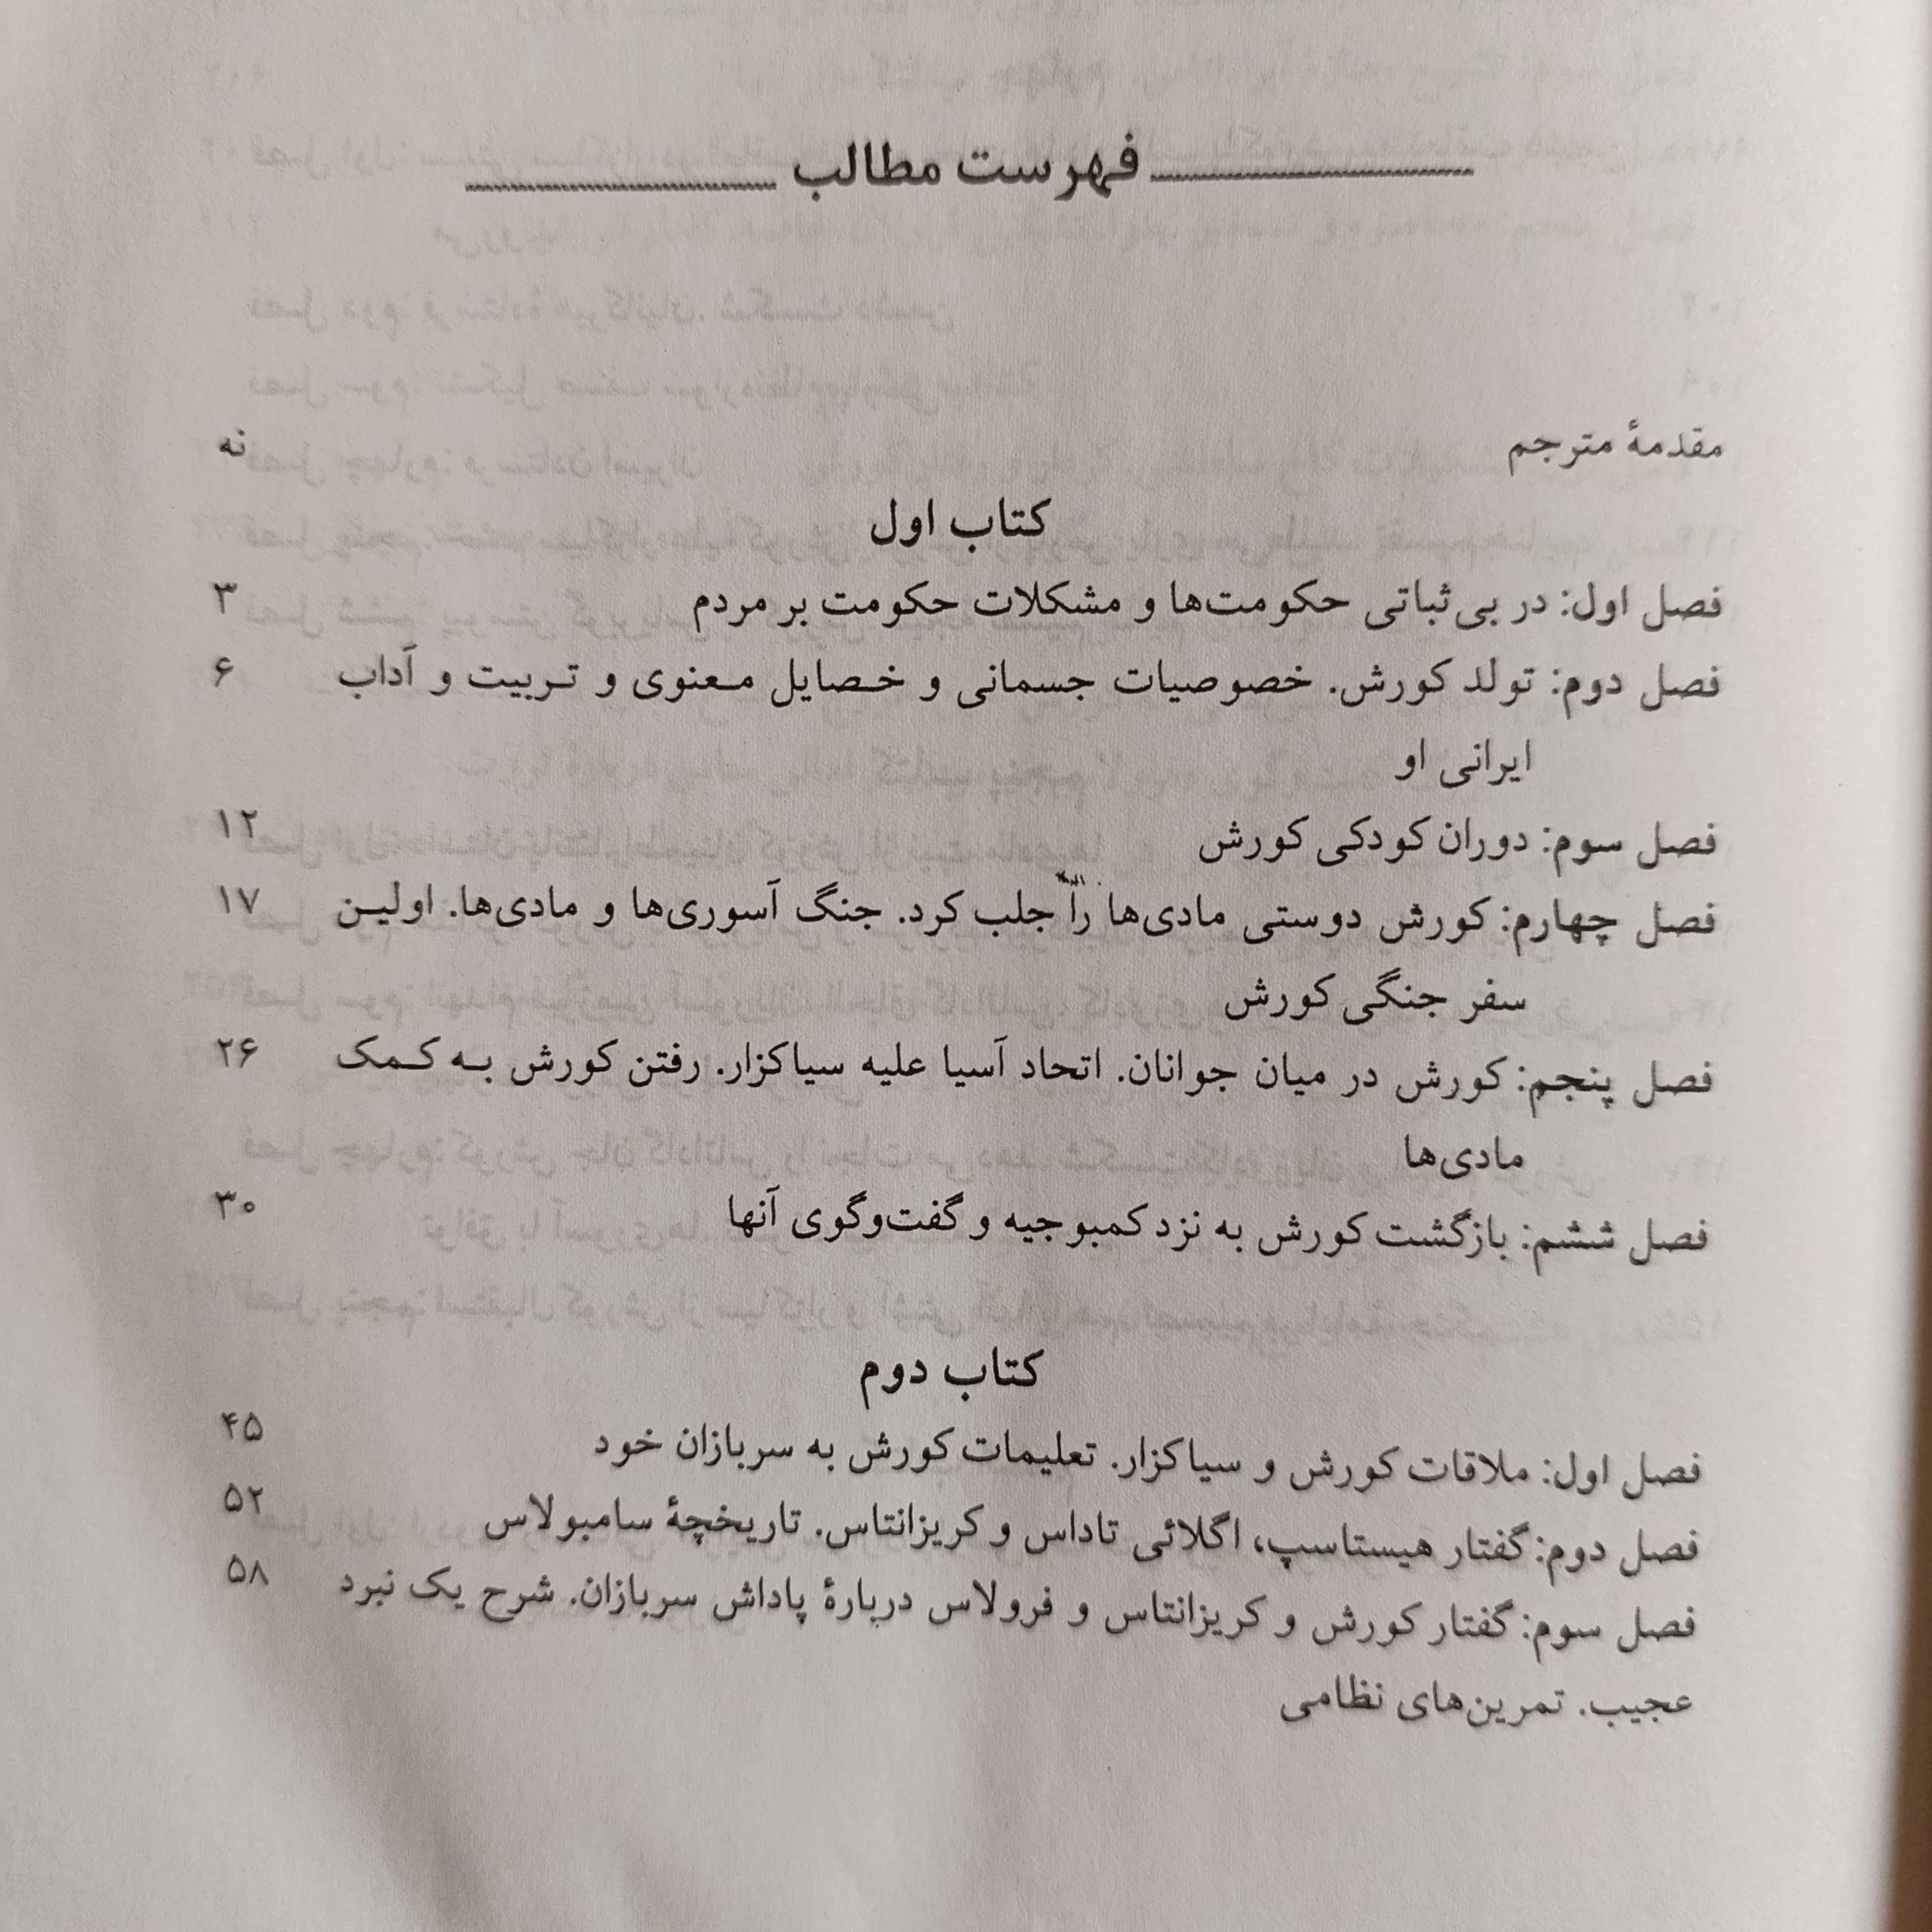 فهرست مطالب
مقدمهٔ مترجم نه
کتاب اول
فصل اول: در بی‌ثباتی حکومت‌ها و مشکلات حکومت بر مردم ۳
فصل دوم: تولد کورش. خصوصیات جسمانی و خصایل معنوی و تربیت و آداب ۶
ایرانی او
فصل سوم: دوران کودکی کورش ۱۲
فصل چهارم: کورش دوستی مادی‌ها را جلب کرد. جنگ آسوری‌ها و مادی‌ها. اولین ۱۷
سفر جنگی کورش
فصل پنجم: کورش در میان جوانان. اتحاد آسیا علیه سیاکزار. رفتن کورش به کمک ۲۶
مادی‌ها
فصل ششم: بازگشت کورش به نزد کمبوجیه و گفت‌وگوی آنها ۳۰
کتاب دوم
فصل اول: ملاقات کورش و سیاکزار. تعلیمات کورش به سربازان خود ۴۵
فصل دوم: گفتار هیستاسپ، اگلائی تاداس و کریزانتاس. تاریخچهٔ سامبولاس ۵۲
فصل سوم: گفتار کورش و کریزانتاس و فرولاس دربارهٔ پاداش سربازان. شرح یک نبرد ۵۸
عجیب. تمرین‌های نظامی